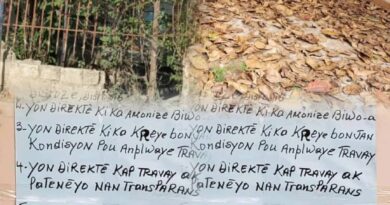 YON DIREKTÈ Ki KA AMONIZE BiWO-A YON DIREKTÈ Ki KA AMONIZE BiWO-a
3-YON DIREKTÈ Ki KA KREYE bON JAN YON DIREKTÈ Ki KA KREYE bON JAN
KONDISYON POU ANPLWAYE TRAVAY KONDISYON POU ANPLWAYE TRAVAY
4-YON DIREKTÈ KAP TRAVAY aK YON DIREKTÈ KAP TRAVAY aK
PATENÈYO NAN TRANSPARANS PATENÈYO NAN TRANSPARANS